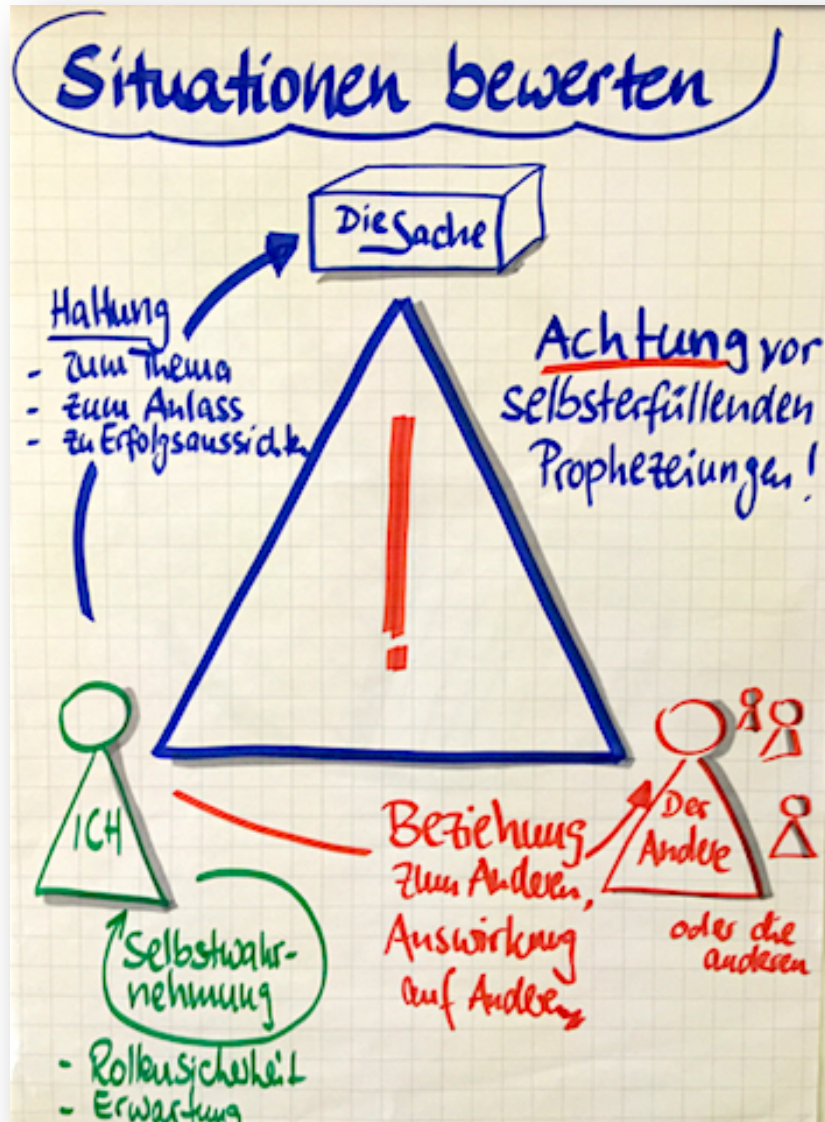 Situationen bewerten
Die Sache
Haltung
- zum Thema
- zum Anlass
- zu Erfolgsaussichten
Achtung vor
selbsterfüllenden
Prophezeiungen!
!
ICH
Selbstwahr-
nehmung
- Rollensicherheit
- Erwartung
Beziehung
zum Anderen,
Auswirkung
auf Andere
Der
Andere
oder die
anderen